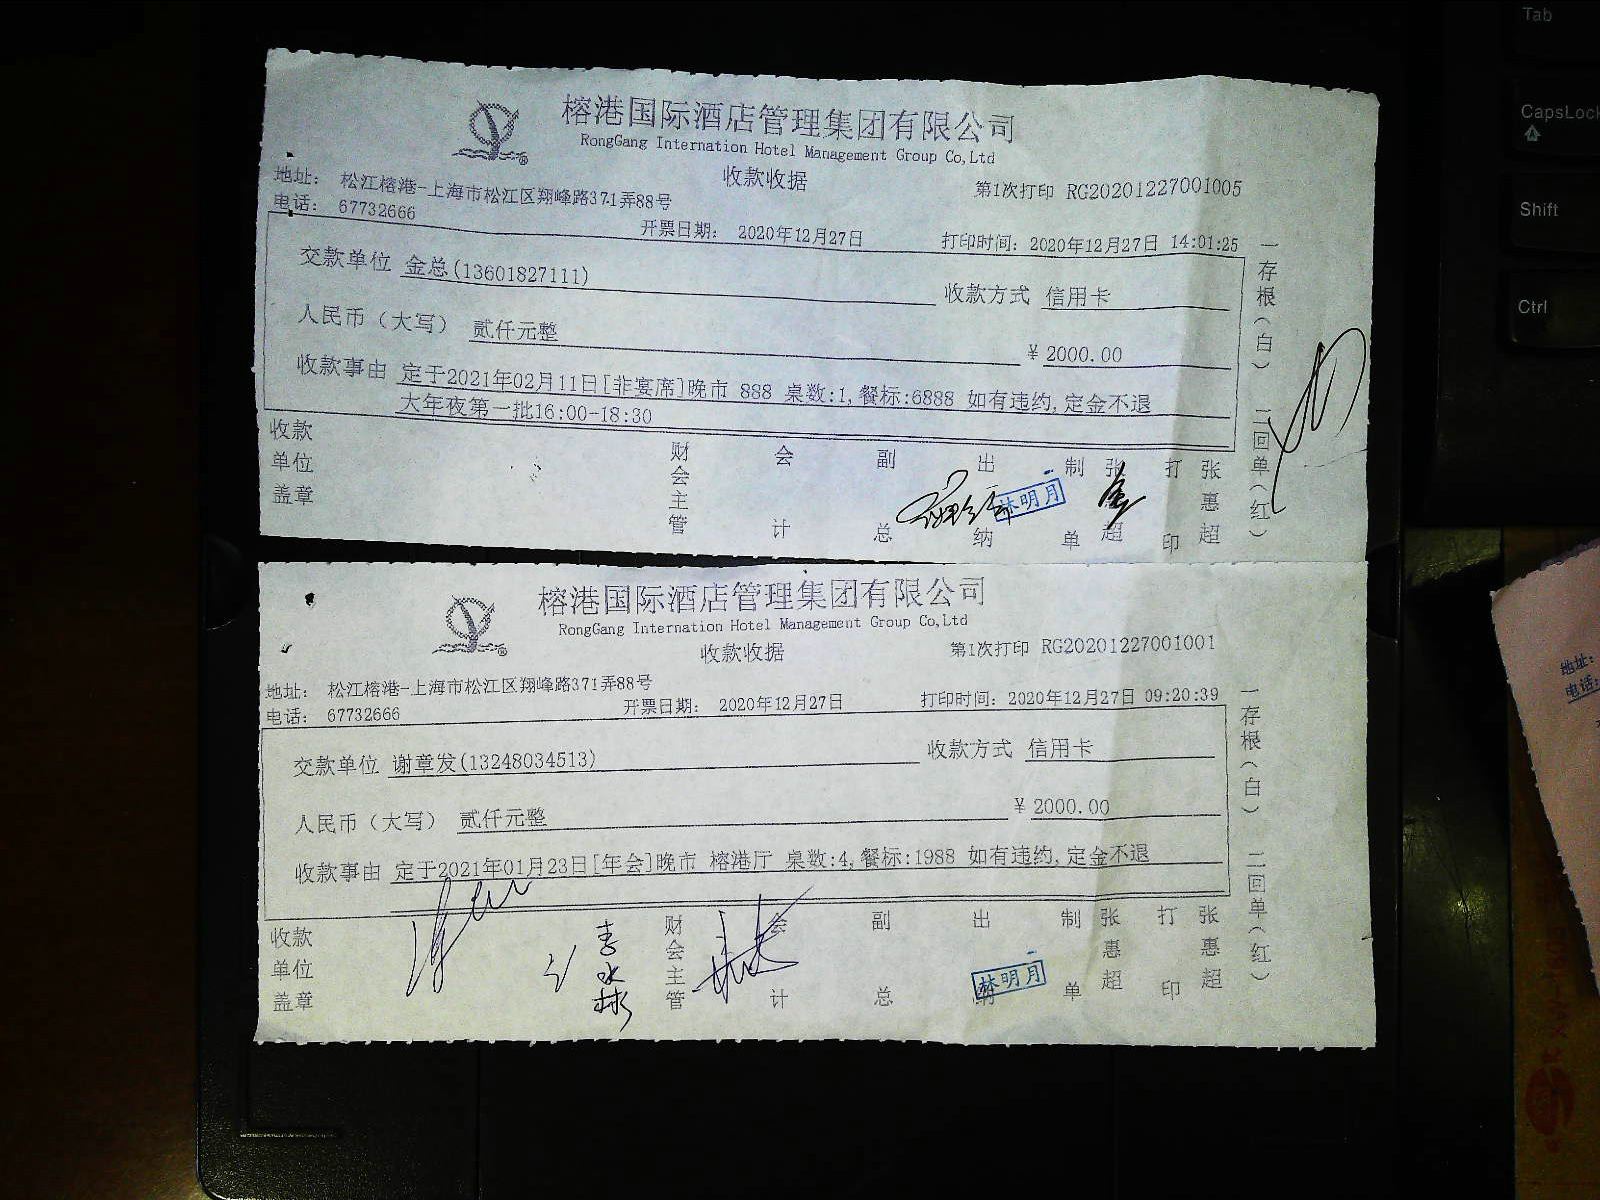 榕港国际酒店管理集团有限公司
RongGang Internation Hotel Management Group Co,Ltd
收款收据
第1次打印 RG20201227001005
地址： 松江榕港-上海市松江区翔峰路371弄88号
电话： 67732666
开票日期： 2020年12月27日
打印时间：2020年12月27日 14:01:25
交款单位 金总(13601827111)
收款方式 信用卡
人民币（大写） 贰仟元整
¥ 2000.00
收款事由 定于2021年02月11日[非宴席]晚市 888 桌数:1,餐标:6888 如有违约,定金不退
大年夜第一批16:00-18:30
收款单位盖章
财会主管
会计
副总
出纳
林明月
制单
张惠超
打印
张惠超
一存根（白） 二回单（红）
榕港国际酒店管理集团有限公司
RongGang Internation Hotel Management Group Co,Ltd
收款收据
第1次打印 RG20201227001001
地址： 松江榕港-上海市松江区翔峰路371弄88号
电话： 67732666
开票日期： 2020年12月27日
打印时间：2020年12月27日 09:20:39
交款单位 谢章发(13248034513)
收款方式 信用卡
人民币（大写） 贰仟元整
¥ 2000.00
收款事由 定于2021年01月23日[年会]晚市 榕港厅 桌数:4,餐标:1988 如有违约,定金不退
收款单位盖章
财会主管
会计
副总
出纳
林明月
制单
张惠超
打印
张惠超
一存根（白） 二回单（红）
Tab
CapsLock
Shift
Ctrl
地址：
电话：